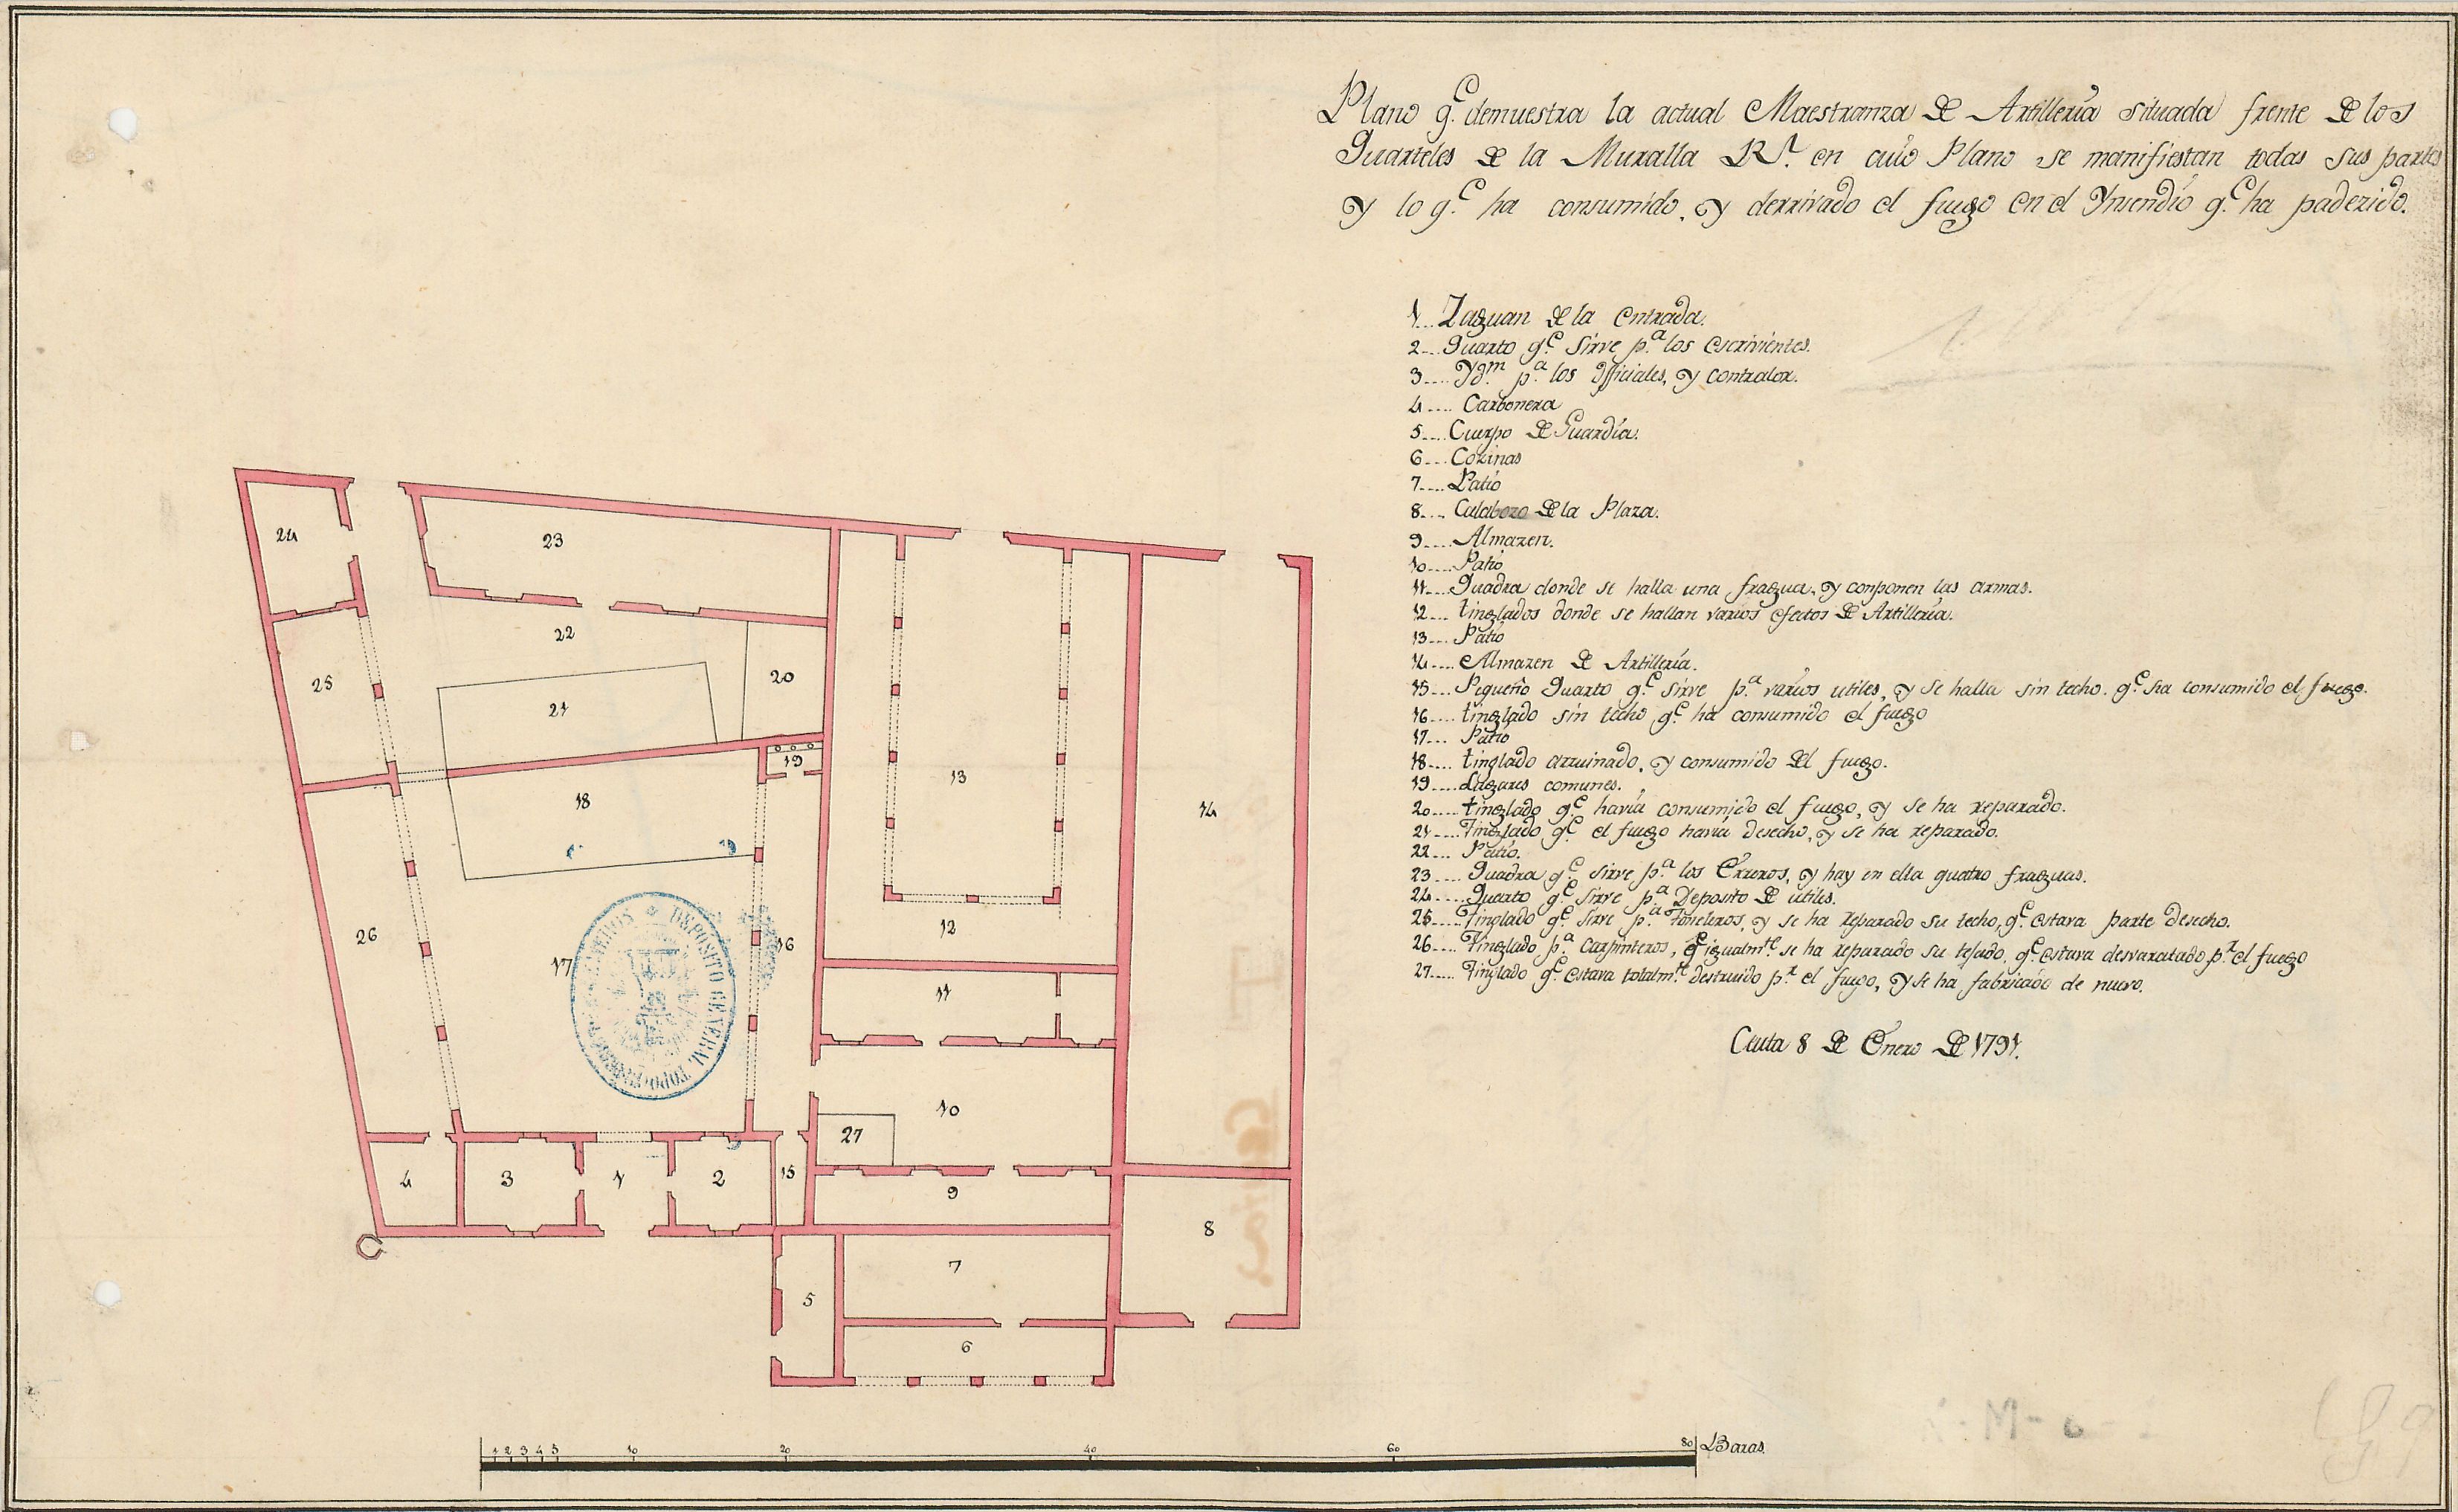 Plano q.e demuestra la actual Maestranza de Artilleria situada frente de los
Quarteles de la Muralla R.l en cuio Plano se manifiestan todas sus partes
y lo q.e ha consumido, y derrivado el fuego en el Ynsendio q.e ha padezido.
1... Zaguan de la entrada.
2... Quarto q.e sirve p.a los escrivientes.
3.... Yd.m p.a los Officiales, y contralor.
4.... Carbonera
5.... Cuerpo de Guardia.
6.... Cozinas
7.... Patio
8.... Calabozo de la Plaza.
9.... Almazen.
10.... Patio
11.... Quadra donde se halla una fragua, y conponen las armas.
12.... tinglados donde se hallan varios efectos de Artilleria.
13.... Patio
14.... Almazen de Artilleria.
15.... Piqueño Quarto q.e sirve p.a varios utiles, y se halla sin techo. q.e ha consumido el fuego.
16.... tinglado sin techo q.e ha consumido el fuego
17.... Patio
18.... tinglado arruinado, y consumido del fuego.
19.... Lugares comunes.
20.... tinglado q.e havia consumido el fuego, y se ha reparado.
21.... Tinglado q.e el fuego havia desecho, y se ha reparado.
22.... Patio.
23.... Quadra q.e sirve p.a los Erreros, y hay en ella quatro fraguas.
24.... Quarto q.e sirve p.a Deposito de utiles.
25.... Tinglado q.e sirve p.a Toneleros, y se ha reparado su techo, q.e estava parte desecho.
26.... Tinglado p.a Carpinteros, q.e igualm.te se ha reparado su tejado, q.e estava desvaratado p.r el fuego
27.... Tinglado q.e estava totalm.te destruido p.r el fuego, y se ha fabricado de nuevo.
Ceuta 8 de Enero de 1791.
24
23
22
25
20
21
19
18
13
14
26
17
16
12
11
10
27
4
3
1
2
15
9
8
7
5
6
DEPOSITO GENERAL TOPOGRAFICO
1 2 3 4 5 10 20 40 60 80 Baras